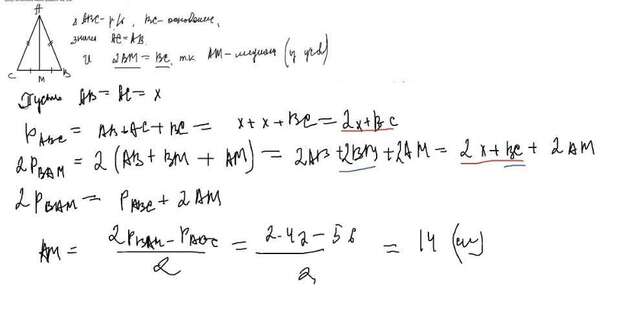 A
C M B
Δ ABC - р/б, BC - основание,
значит AC = AB.
И 2BM = BC, т.к. AM - медиана (из усл)
Пусть AB = AC = x
P ABC = AB + AC + BC = x + x + BC = 2x + BC
2P BAM = 2 (AB + BM + AM) = 2AB + 2BM + 2AM = 2x + BC + 2AM
2P BAM = P ABC + 2AM
AM = 2P BAM - P ABC / 2 = 2·42 - 56 / 2 = 14 (см)